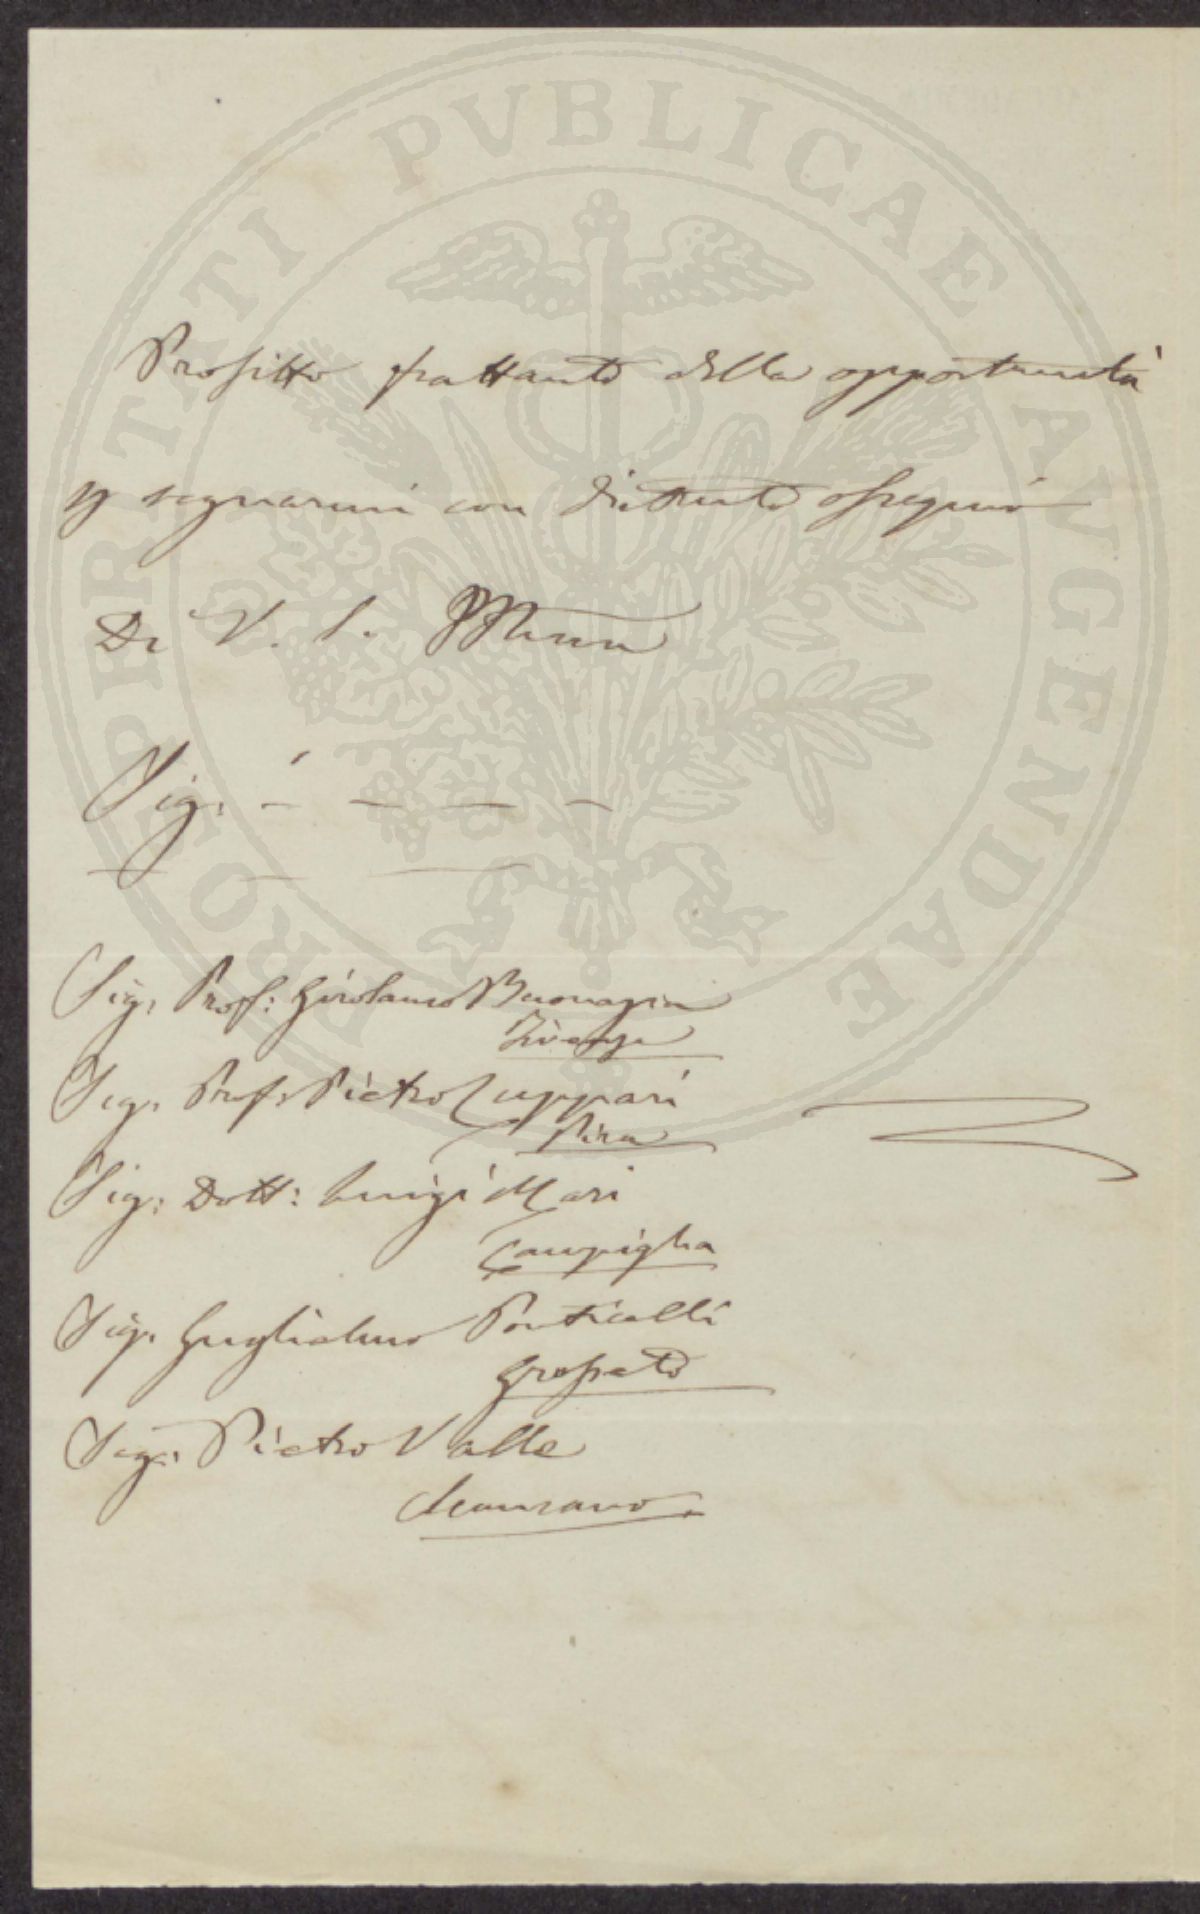 PROSPERITATI PVBLICAE AVGENDAE
Profitto frattanto della opportunità
p segnarmi con distinto ossequio
Di V. S. Illma
Sig. – – – –
Sig. Prof: Girolamo Buonagia
Firenze
Sig. Prof. Pietro Cuppari
Pisa
Sig: Dott: Luigi Mari
Campiglia
Sig. Guglielmo Ponticelli
Grosseto
Sig. Pietro Valle
Scansano